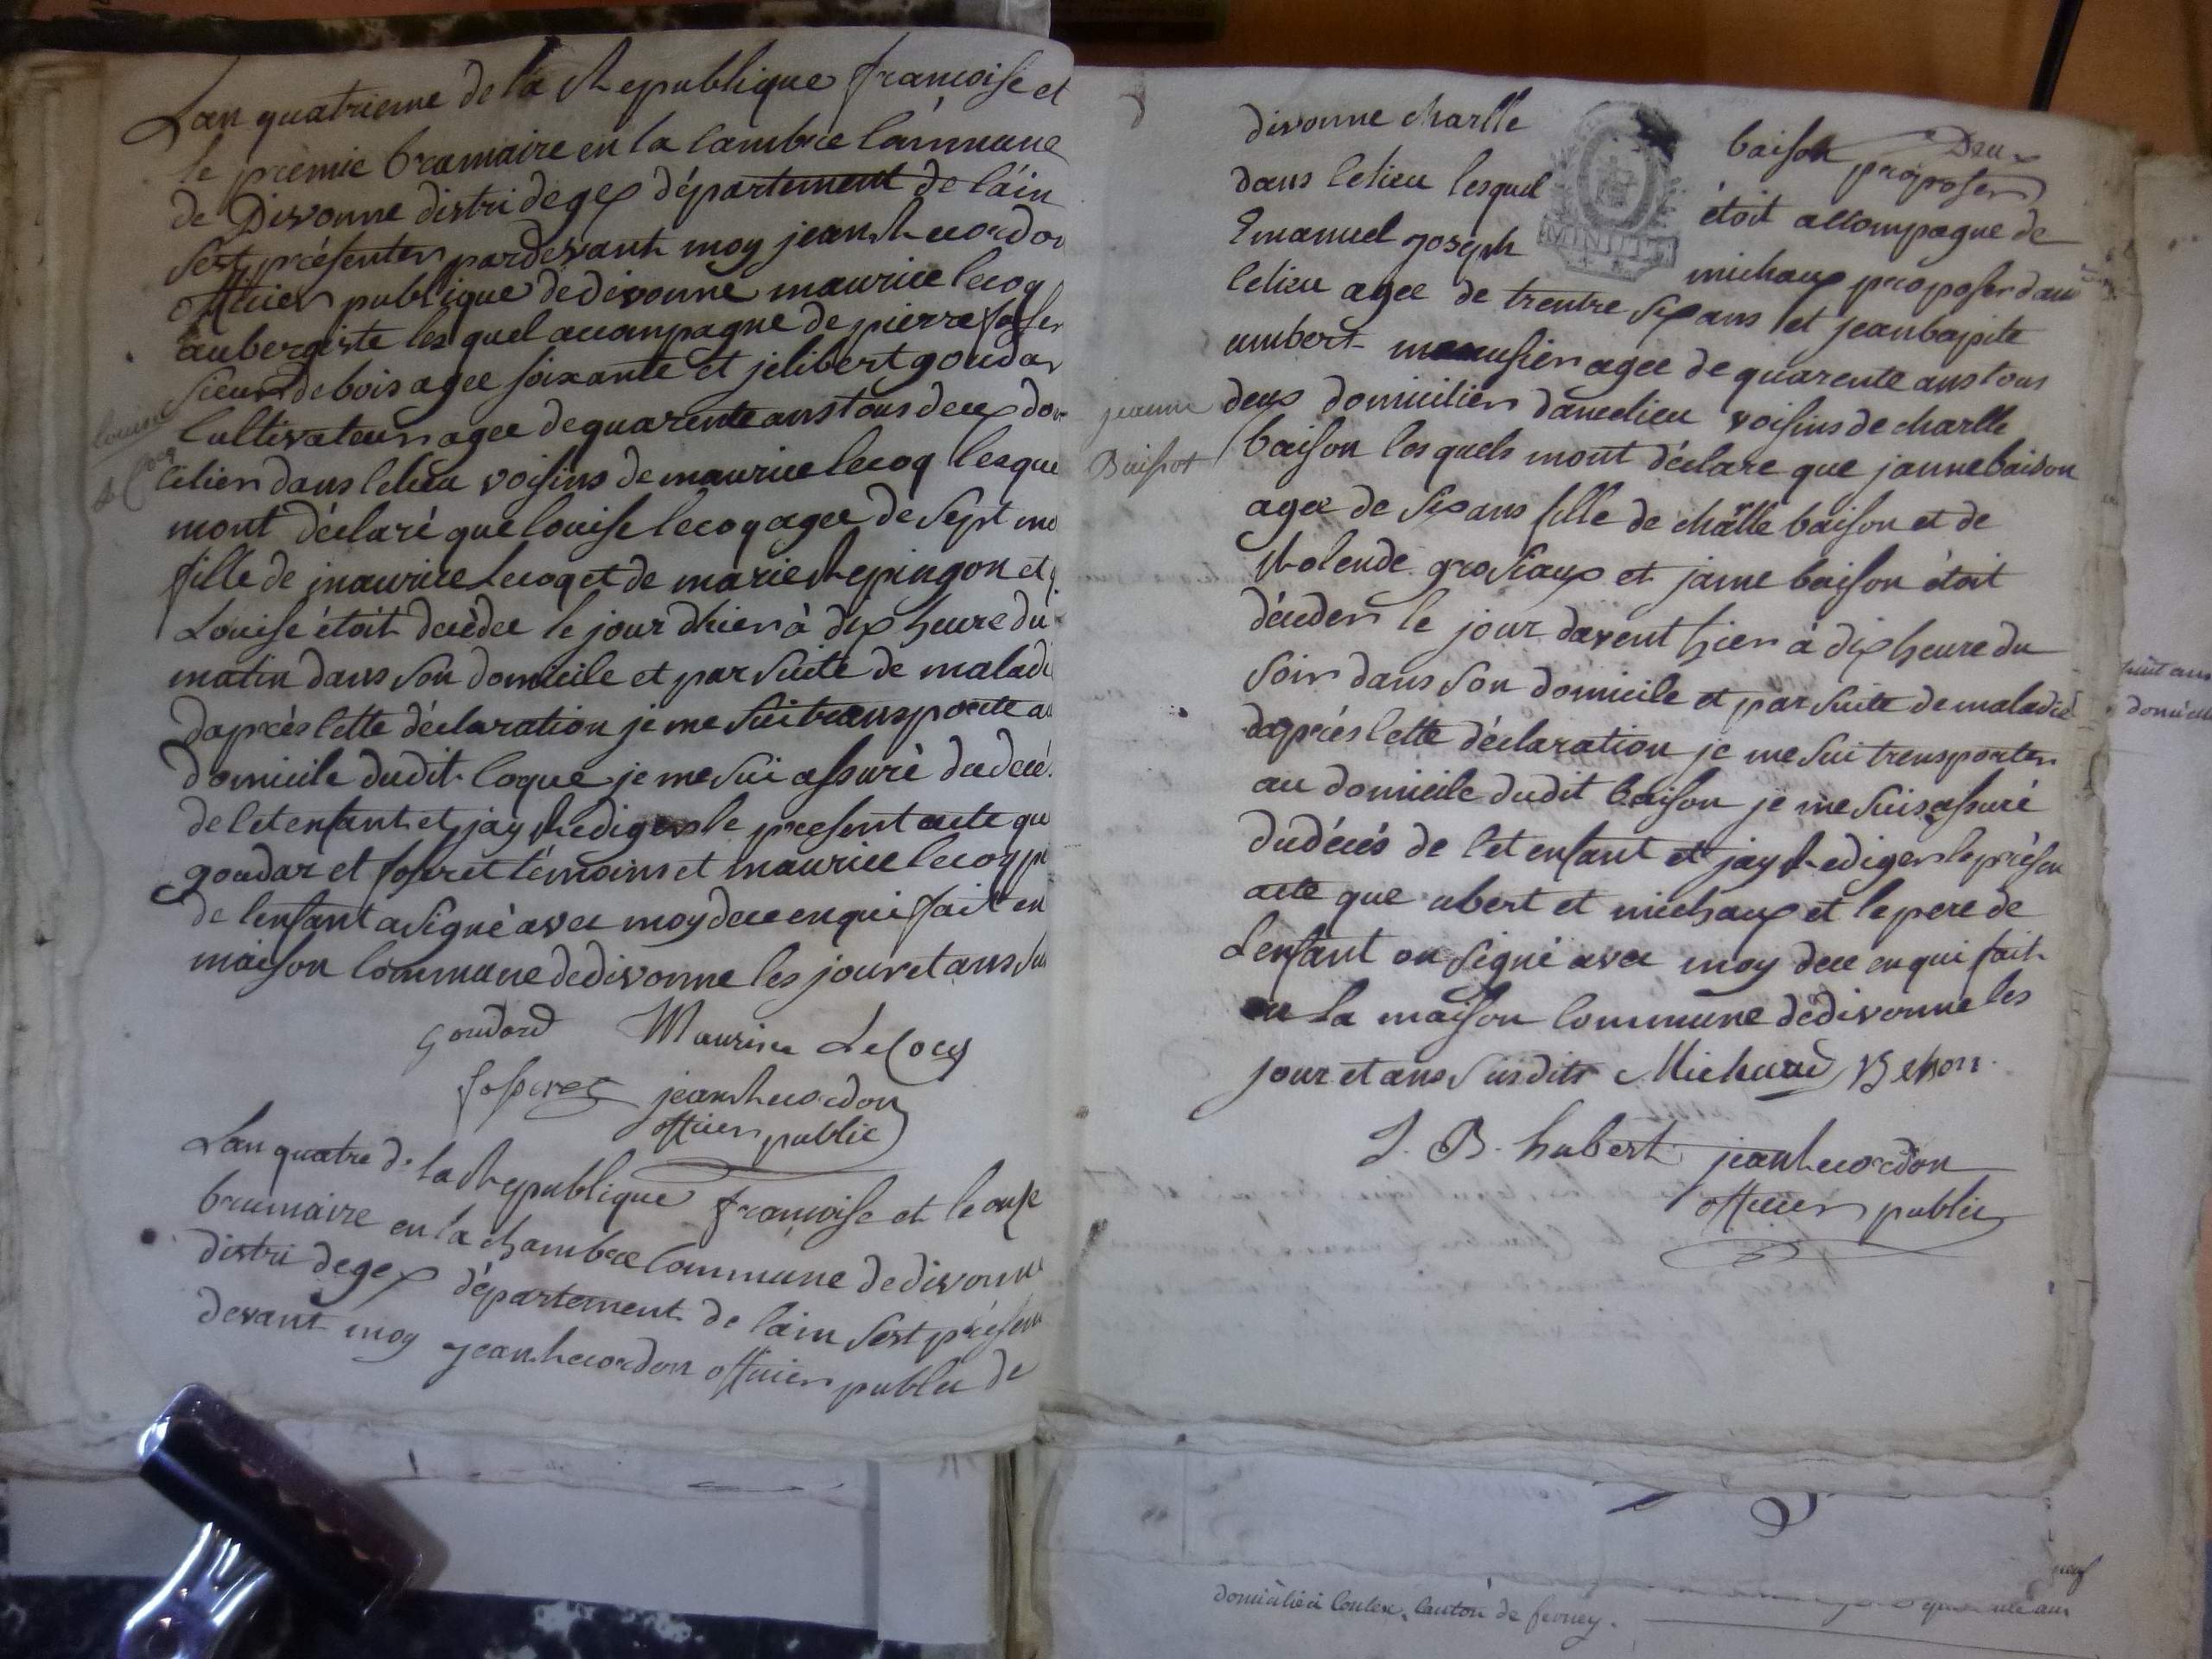 Lan quatrieme de la Republique francoise et
le premie brumaire en la cambre commune
de Divonne distri de gex département de l'ain
sest présenter pardevant moy jean Recordon
officier publique de divonne maurice lecoq
aubergiste les quel acompagne de pierre
sieur de bois agee soixante et jelibert goudar
cultivateur agee de quarente ans tous deux do
cilier dans le lieu voisins de maurice lecoq lesque
louise
le Coq
mont déclaré que louise lecoq agee de sept mo
fille de maurice Lecoq et de marie Repingon et
Louise étoit decèdee le jour dhier à dix heure du
matin dans son domicile et par suite de maladi
daprès cette déclaration je me sui transporte au
domicile dudit loque je me sui assuré du decé
de cet enfant et jay Rediger le present acte qu
goudar et fosseret témoins et maurice lecoq pe
de lenfant a signé avec moy dece enqui fait en
maison commune de divonne les jour et ans su
goudard Maurice LeCocq
fosseret jean Recordon
officier public
Lan quatre de la Republique francoise et le onse
brumaire en la chambre commune de divonne
distri de gex département de lain sest présen
devant moy jean Recordon officier public de
divonne charlle baison Deux
proposer
dans le lieu lesquel étoit accompagne de
Emanuel joseph michaux proposer dans
MINUTE
le lieu agee de trentre six ans et jean bapite
umbert menusier agee de quarente ans tous
deux domicilier dans cedieu voisins de charlle
jeanne
Baison
baison les quels mont déclare que janne baison
agee de six ans fille de charlle baison et de
Rolende grosiaux et janne baison étoit
déceder le jour davent hier à dix heure du
soir dans son domicile et par suite de maladie
daprès cette déclaration je me sui trensporter
au domicile dudit baison je me suis assuré
du décés de cet enfant et jay Rediger le présen
acte que ubert et michaux et le pere de
Lenfant on signé avec moy dece enqui fait
en la maison commune de divonne les
jour et ans susdits Michaud Beson
J. B. hubert jean Recordon
officier public
huit ans
domicili
neuf
domicilié à Conlex, canton de ferney.